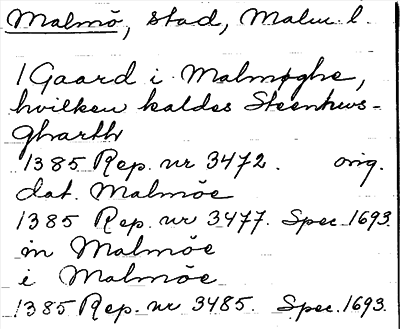 Malmö, stad, Malm. l.
1 Gaard i Malmøghe,
hvilken kaldes Steenhws-
gharth
1385 Rep. nr 3472. orig.
dat. Malmöe
1385 Rep. nr 3477. Spec. 1693.
in Malmöe
i Malmöe
1385 Rep. nr 3485. Spec. 1693.